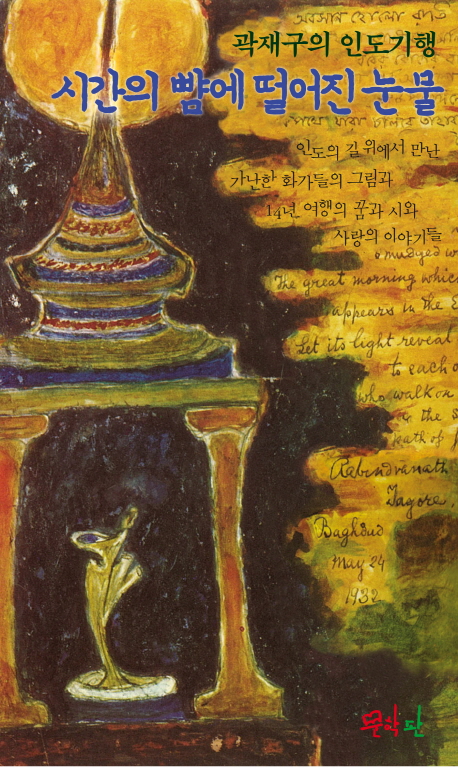 곽재구의 인도기행
시간의 뺨에 떨어진 눈물
인도의 길 위에서 만난
가난한 화가들의 그림과
14년 여행의 꿈과 시와
사랑의 이야기들
The great morning which
appears in the E
Let its light reveal
to each o
who walk on
the s
path of p
Rabindranath
Tagore
Baghdad
May 24
1932
문학판